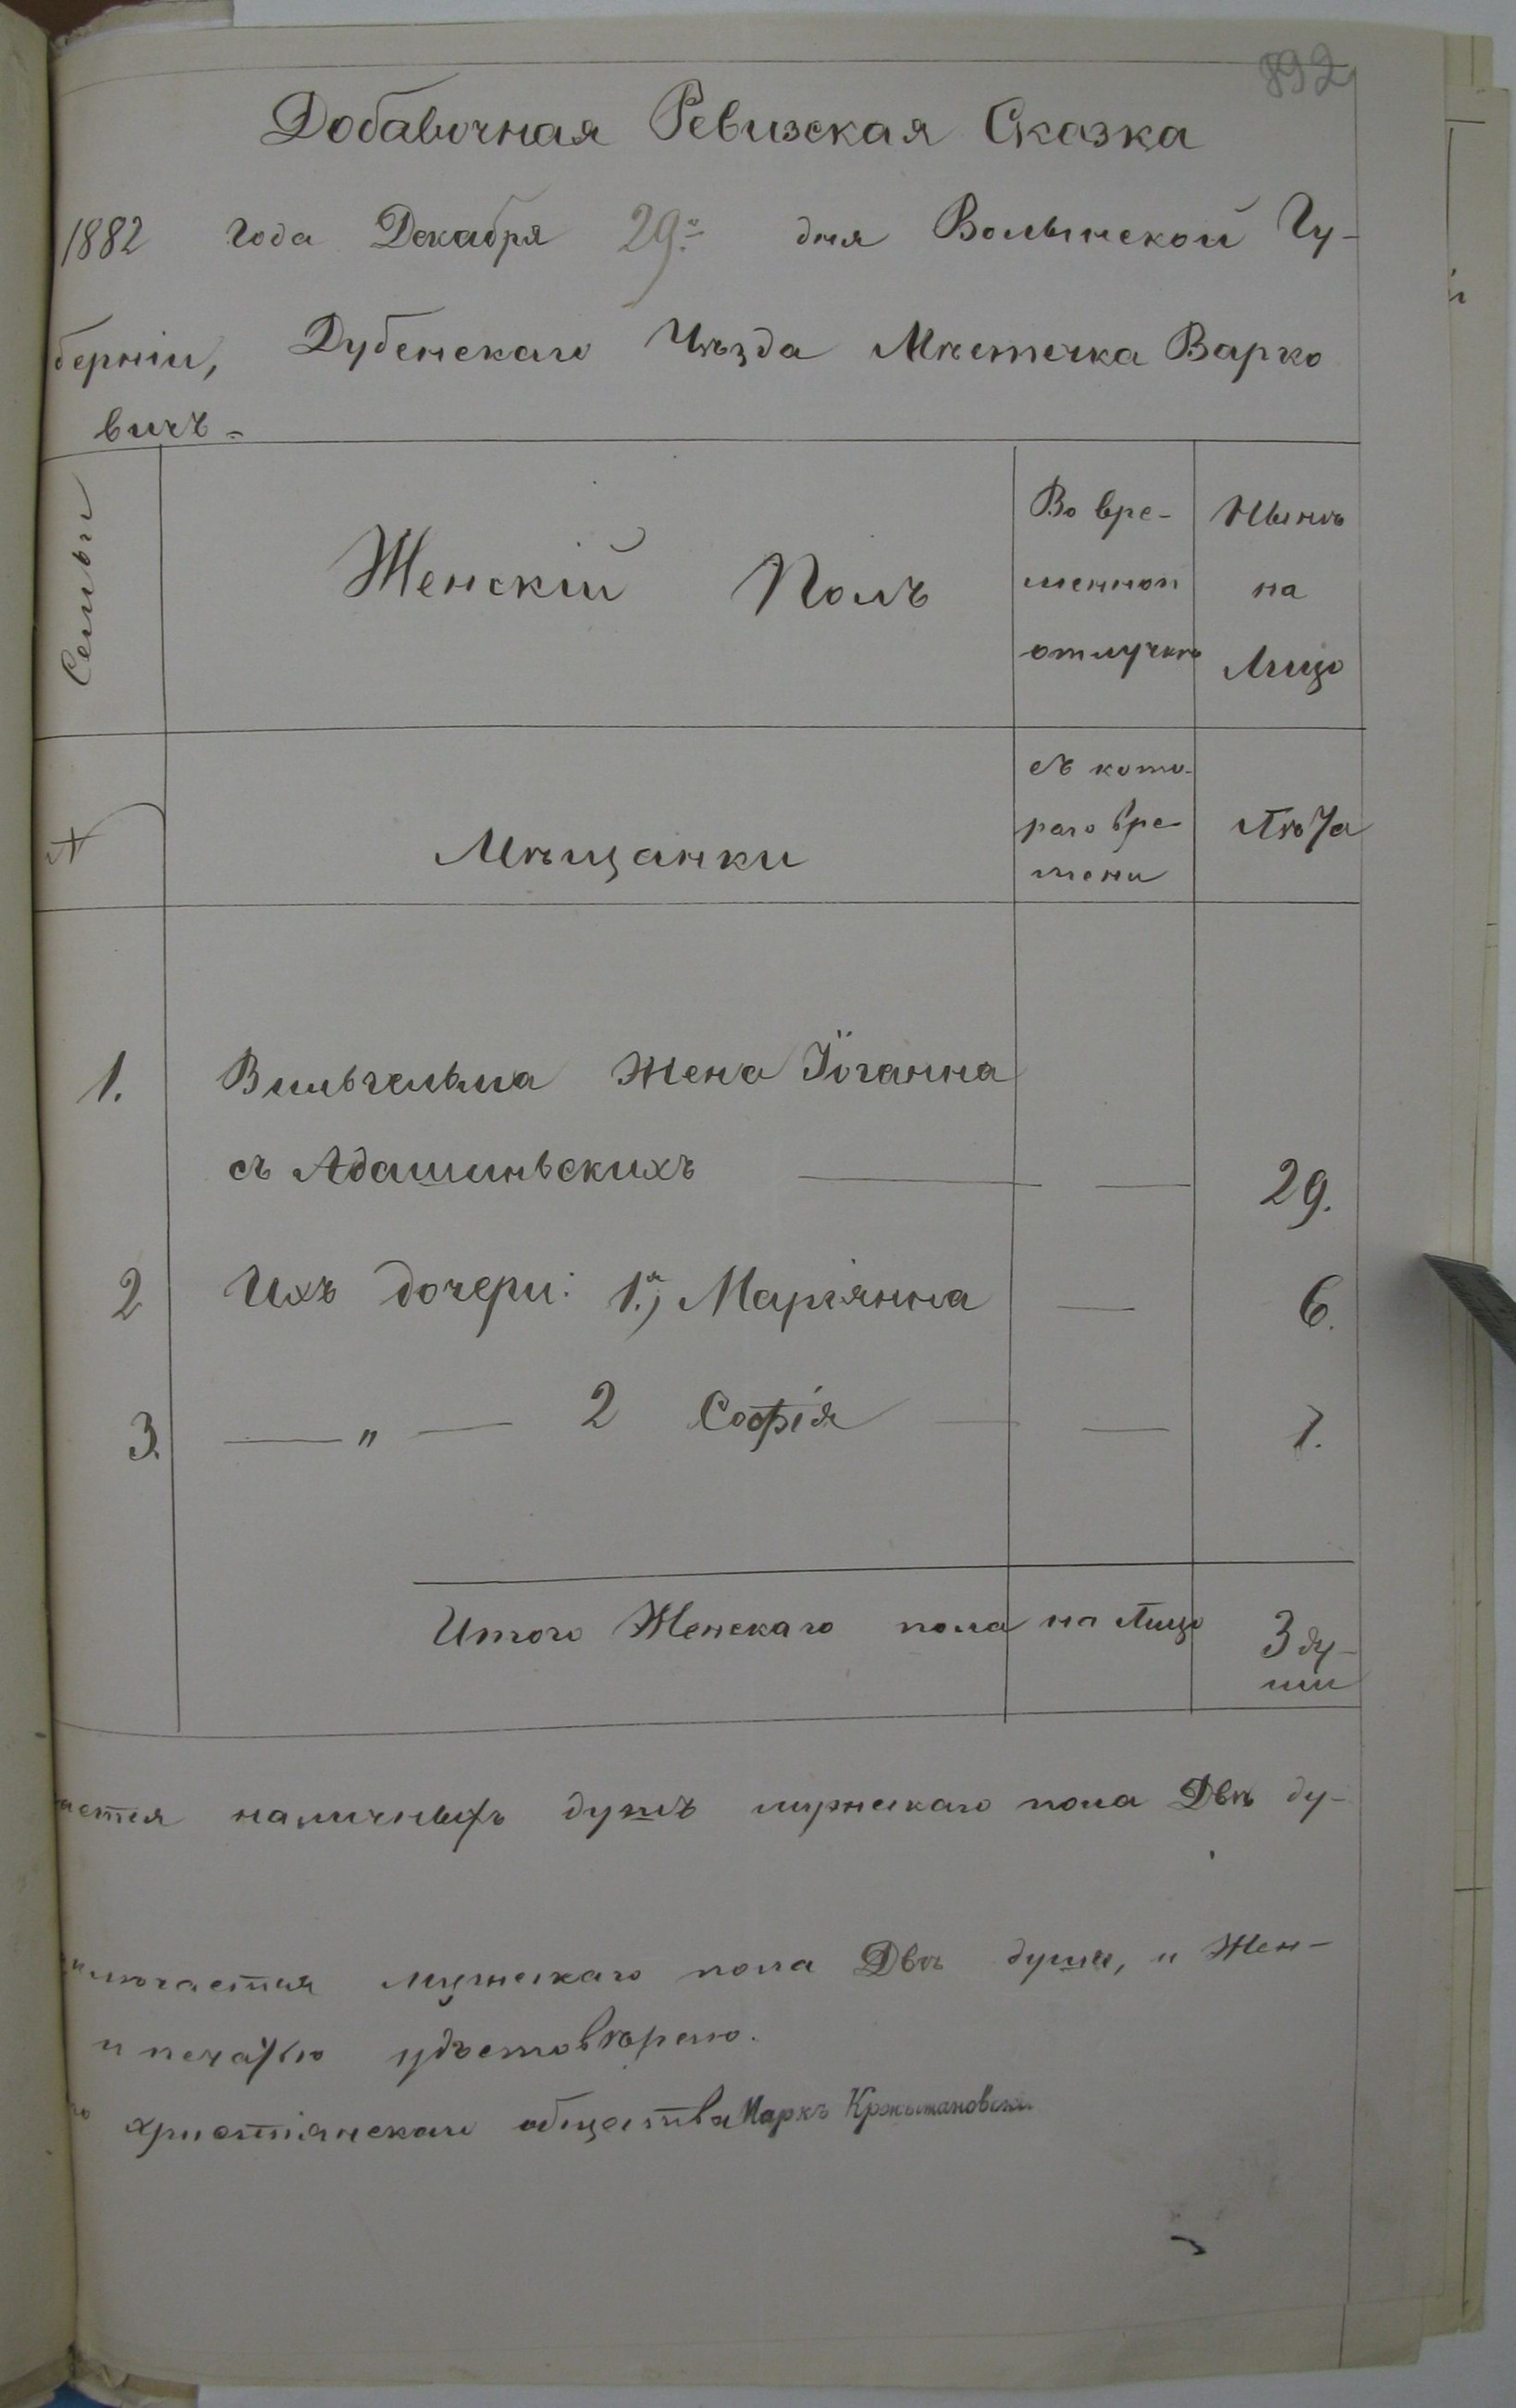 892
Добавочная Ревизская Сказка
1882 года Декабря 29го дня Волынской Гу-
берніи, Дубенскаго Уѣзда Мѣстечка Варко
вичъ -
Семьи
Женскій Полъ
Во вре-
менной
отлучкѣ
Нынѣ
на
Лицо
№
Мѣщанки
съ кото-
раго вре-
мени
Лѣта
1. Вильгельма жена Іоганна
съ Адашиньскихъ — — 29.
2 Ихъ дочери: 1я, Маріянна — 6.
3. — " — 2 Софія — — 1.
Итого Женскаго пола на Лицо 3 ду-
ши
ается наличныхъ душъ мужескаго пола Двѣ ду-
ключается мужескаго пола Двѣ души, и Жен-
и печатью удостовѣряю.
го христіянскаго общества Маркъ Кржыжановски